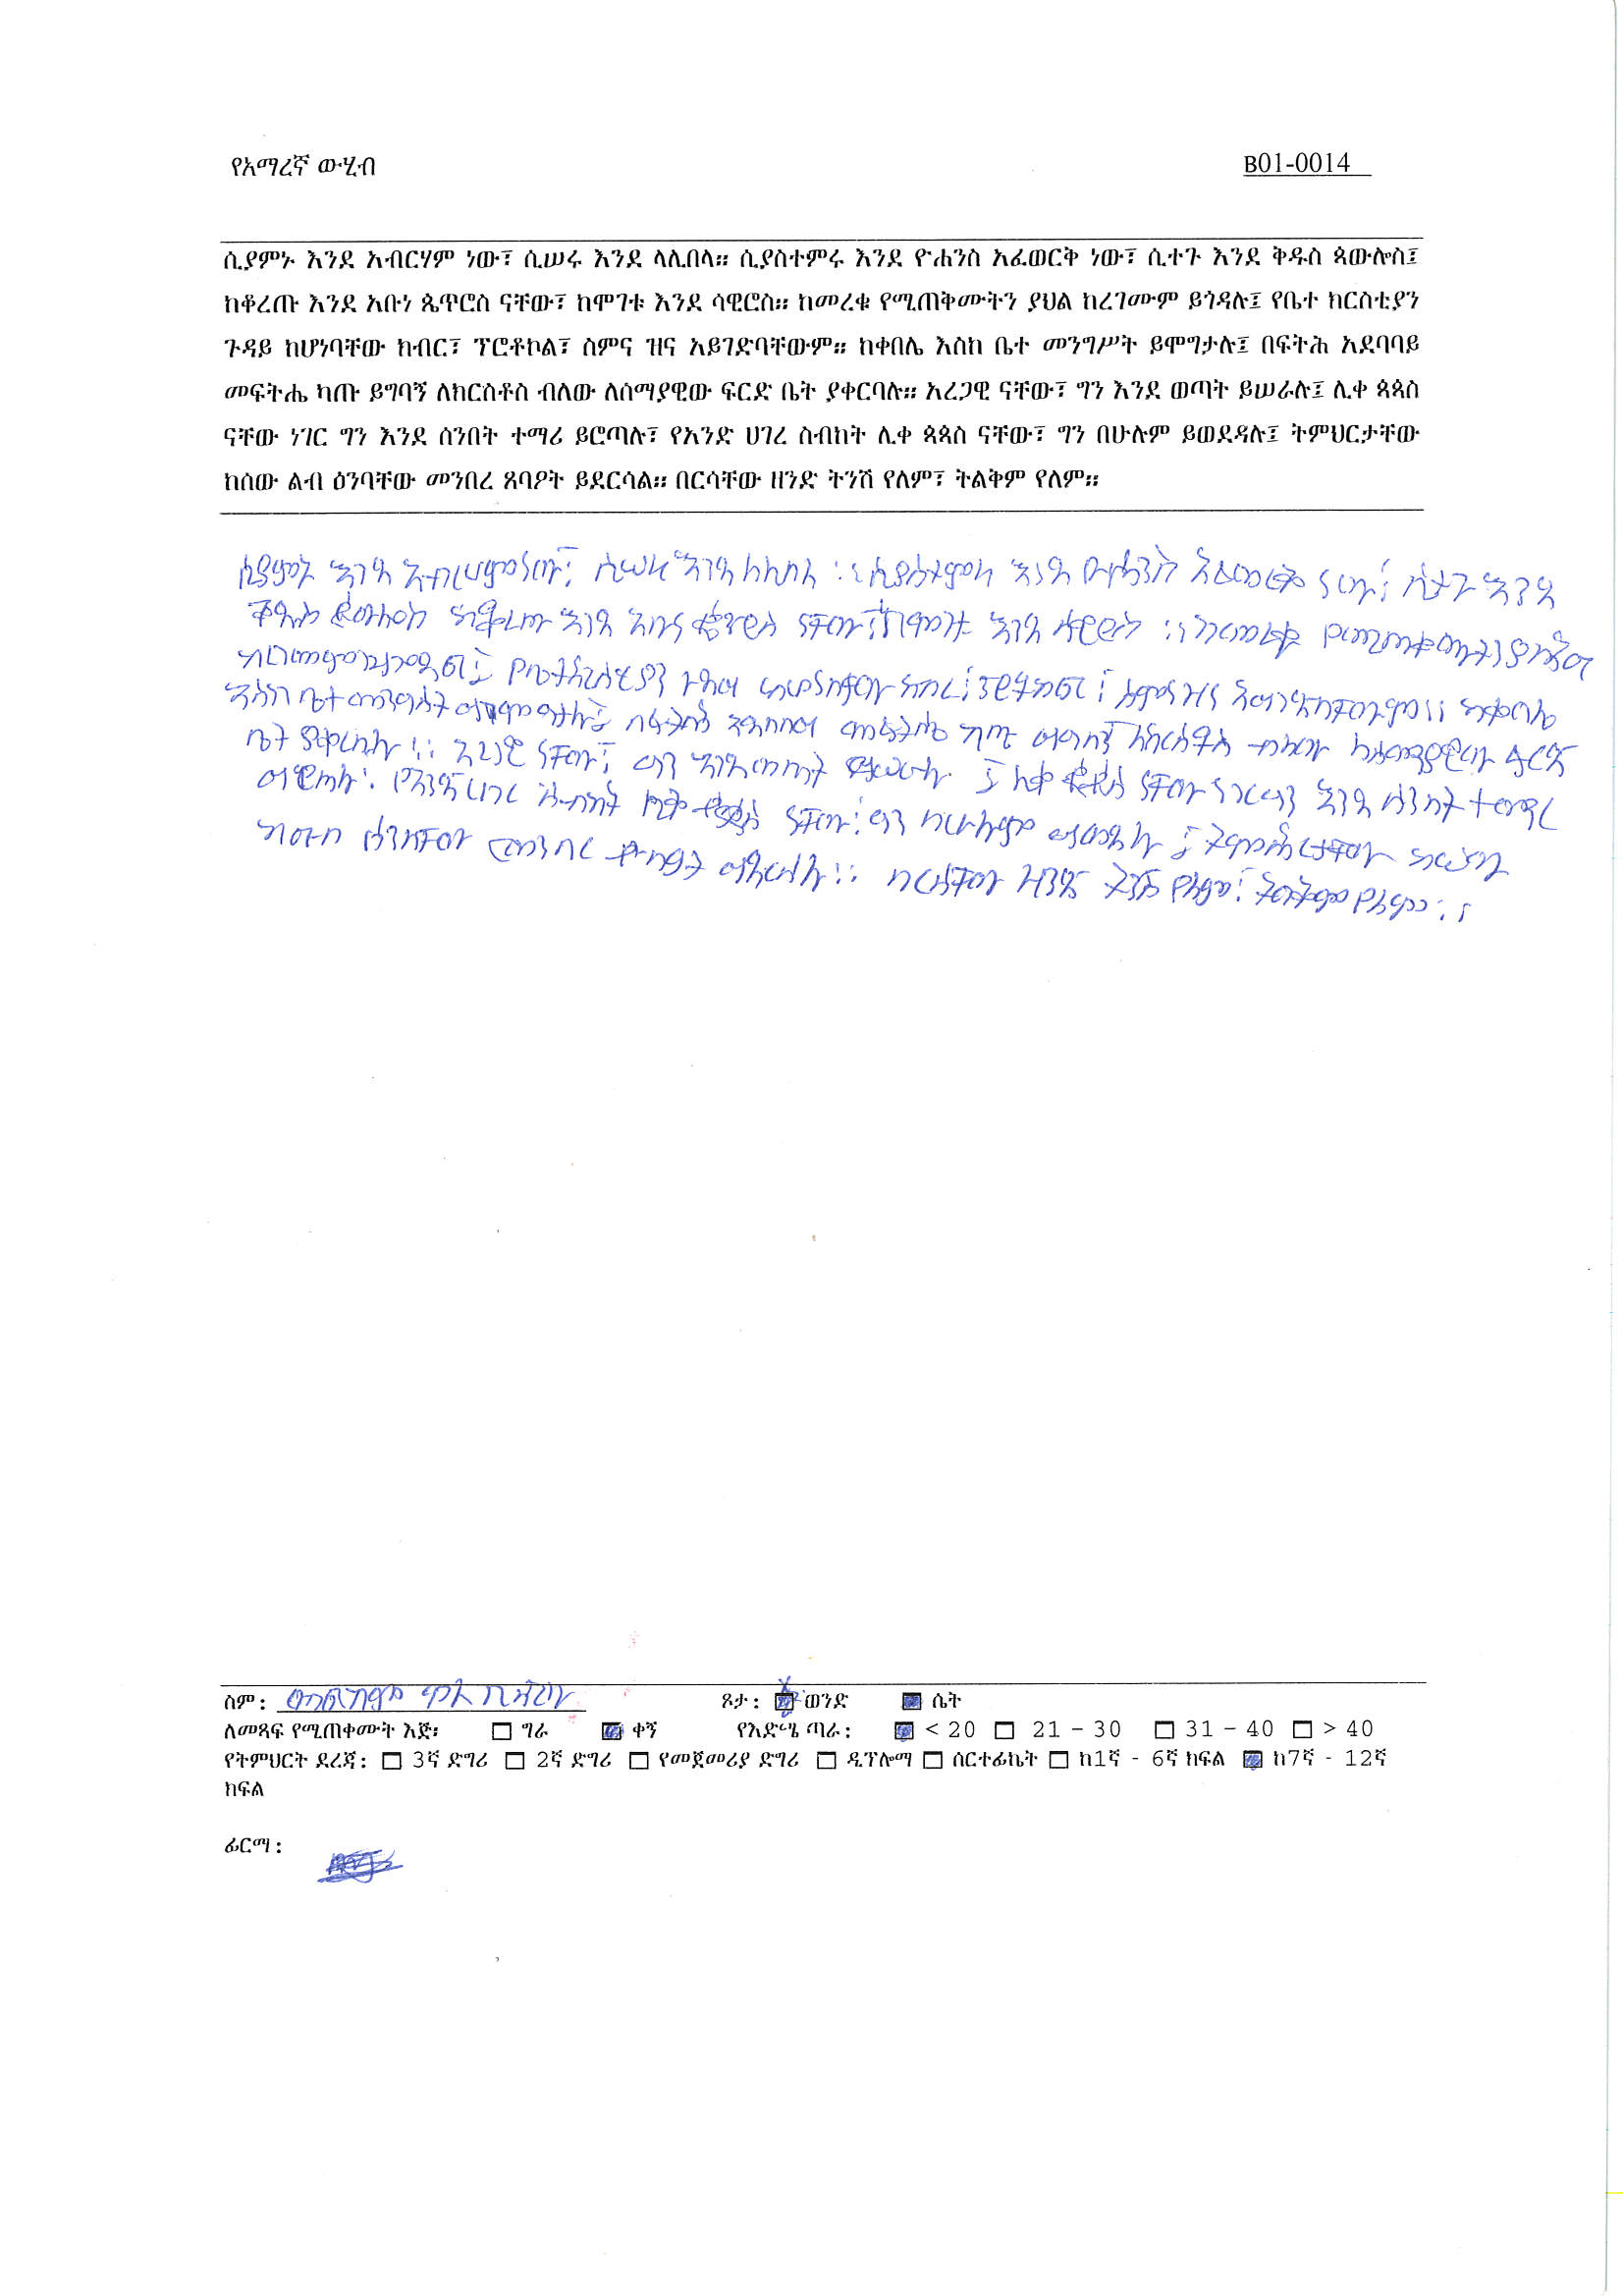 የአማረኛ ውሂብ
B01-0014
ሲያምኑ እንደ አብርሃም ነው፣ ሲሠሩ እንደ ላሊበላ። ሲያስተምሩ እንደ ዮሐንስ አፈወርቅ ነው፣ ሲተጉ እንደ ቅዱስ ጳውሎስ፤
ከቆረጡ እንደ አቡነ ጴጥሮስ ናቸው፣ ከሞገቱ እንደ ሳዊሮስ። ከመረቁ የሚጠቅሙትን ያህል ከረገሙም ይጎዳሉ፤ የቤተ ክርስቲያን
ጉዳይ ከሆነባቸው ክብር፣ ፕሮቶኮል፣ ስምና ዝና አይገድባቸውም። ከቀበሌ እስከ ቤተ መንግሥት ይሞግታሉ፤ በፍትሕ አደባባይ
መፍትሔ ካጡ ይግባኝ ለክርስቶስ ብለው ለሰማያዊው ፍርድ ቤት ያቀርባሉ። አረጋዊ ናቸው፣ ግን እንደ ወጣት ይሠራሉ፤ ሊቀ ጳጳስ
ናቸው ነገር ግን እንደ ሰንበት ተማሪ ይሮጣሉ፣ የአንድ ሀገረ ስብከት ሊቀ ጳጳስ ናቸው፣ ግን በሁሉም ይወደዳሉ፤ ትምህርታቸው
ከሰው ልብ ዕንባቸው መንበረ ጸባዖት ይደርሳል። በርሳቸው ዘንድ ትንሽ የለም፣ ትልቅም የለም።
ሲያምኑ እንደ አብርሃም ነው፣ ሲሠሩ እንደ ላሊበላ ። ሲያስተምሩ እንደ ዮሐንስ አፈወርቅ ነው፣ ሲተጉ እንደ
ቅዱስ ጳውሎስ ከቆረጡ እንደ አቡነ ጴጥሮስ ናቸው፣ ከሞገቱ እንደ ሳዊሮስ ። ከመረቁ የሚጠቅሙትን ያህል
ከረገሙም ይጎዳሉ፤ የቤተክርስቲያን ጉዳይ ከሆነባቸው ክብር፣ ፕሮቶኮል፣ ስምና ዝና አይገድባቸውም። ከቀበሌ
እስከ ቤተ መንግሥት ይሞግታሉ፤ በፍትሕ አደባባይ መፍትሔ ካጡ ይግባኝ ለክርስቶስ ብለው ለሰማያዊው ፍርድ
ቤት ያቀርባሉ ። አረጋዊ ናቸው፣ ግን እንደ ወጣት ይሠራሉ ፤ ሊቀ ጳጳስ ናቸው ነገር ግን እንደ ሰንበት ተማሪ
ይሮጣሉ፣ የአንድ ሀገረ ስብከት ሊቀ ጳጳስ ናቸው፣ ግን በሁሉም ይወደዳሉ ፤ ትምህርታቸው ከሰው
ልብ ዕንባቸው መንበረ ጸባዖት ይደርሳል ። በርሳቸው ዘንድ ትንሽ የለም፣ ትልቅም የለም ።
ስም: ጾታ: ወንድ ሴት
ለመጻፍ የሚጠቀሙት እጅ፡ ግራ ቀኝ የእድሜ ጣራ: < 20 21 – 30 31 – 40 > 40
የትምህርት ደረጃ: 3ኛ ድግሪ 2ኛ ድግሪ የመጀመሪያ ድግሪ ዲፕሎማ ሰርተፊኬት ከ1ኛ - 6ኛ ክፍል ከ7ኛ - 12ኛ
ክፍል
ፊርማ: